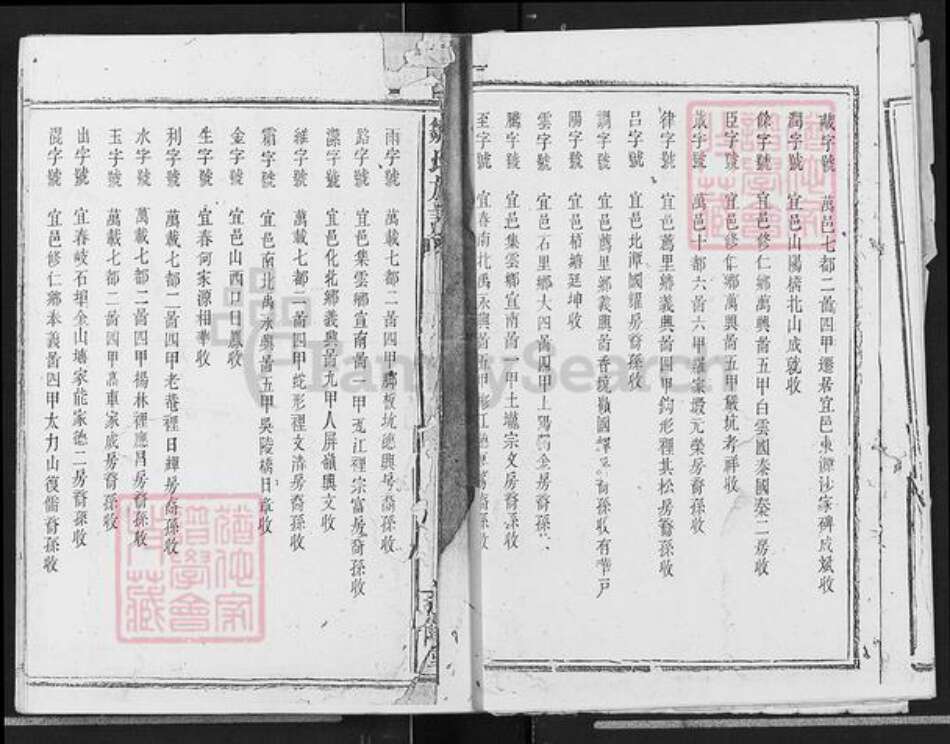 藏字號 萬邑七都二啚四甲遷居宜邑東源沙家碑成斌收
潤字號 宜邑山陽橋北山成號收
餘字號 宜邑修仁鄉萬興啚五甲白雲國泰國秦二房收
臣字號 宜邑修仁鄉萬興啚五甲嚴坑考祥收
歲字號 萬邑十都六啚六甲潘家塅元榮房裔孫收
律字號 宜邑萬里鄉義興啚四甲鈎形裡其松房裔孫收
呂字號 宜邑北潭國耀房裔孫收
調字號 宜邑萬里鄉義興啚香埃嶺國 裔孫收有華戸
陽字號 宜邑栢塘廷坤收
雲字號 宜邑石里鄉大四啚四甲上陽 金房裔孫
騰字號 宜邑集雲鄉宜南啚一甲土壠宗文房裔孫收
至字號 宜春南北禹永興啚五甲 江 裔孫收
雨字號 萬載七都二啚四甲 板坑德興房裔孫收
路字號 宜邑集雲鄉宣南啚 甲 江裡宗富房裔孫收
漆字號 宜邑化北鄉義興啚九甲人屏嶺興文收
維字號 萬載七都二啚四甲蛇形裡文清房裔孫收
霜字號 宜邑南北禹永興啚五甲吳陵橋日章收
金字號 宜邑山西口日晨收
生字號 宜春何家源相華收
利字號 萬載七都二啚四甲老菴裡日輝房裔孫收
水字號 萬載七都二啚四甲楊林裡應昌房裔孫收
玉字號 萬載七都二啚四甲高車家成房裔孫收
出字號 宜春岐石埧金山塘家能家德二房裔孫收
崑字號 宜邑修仁鄉奉義啚四甲太力山復儒裔孫收
FamilySearch